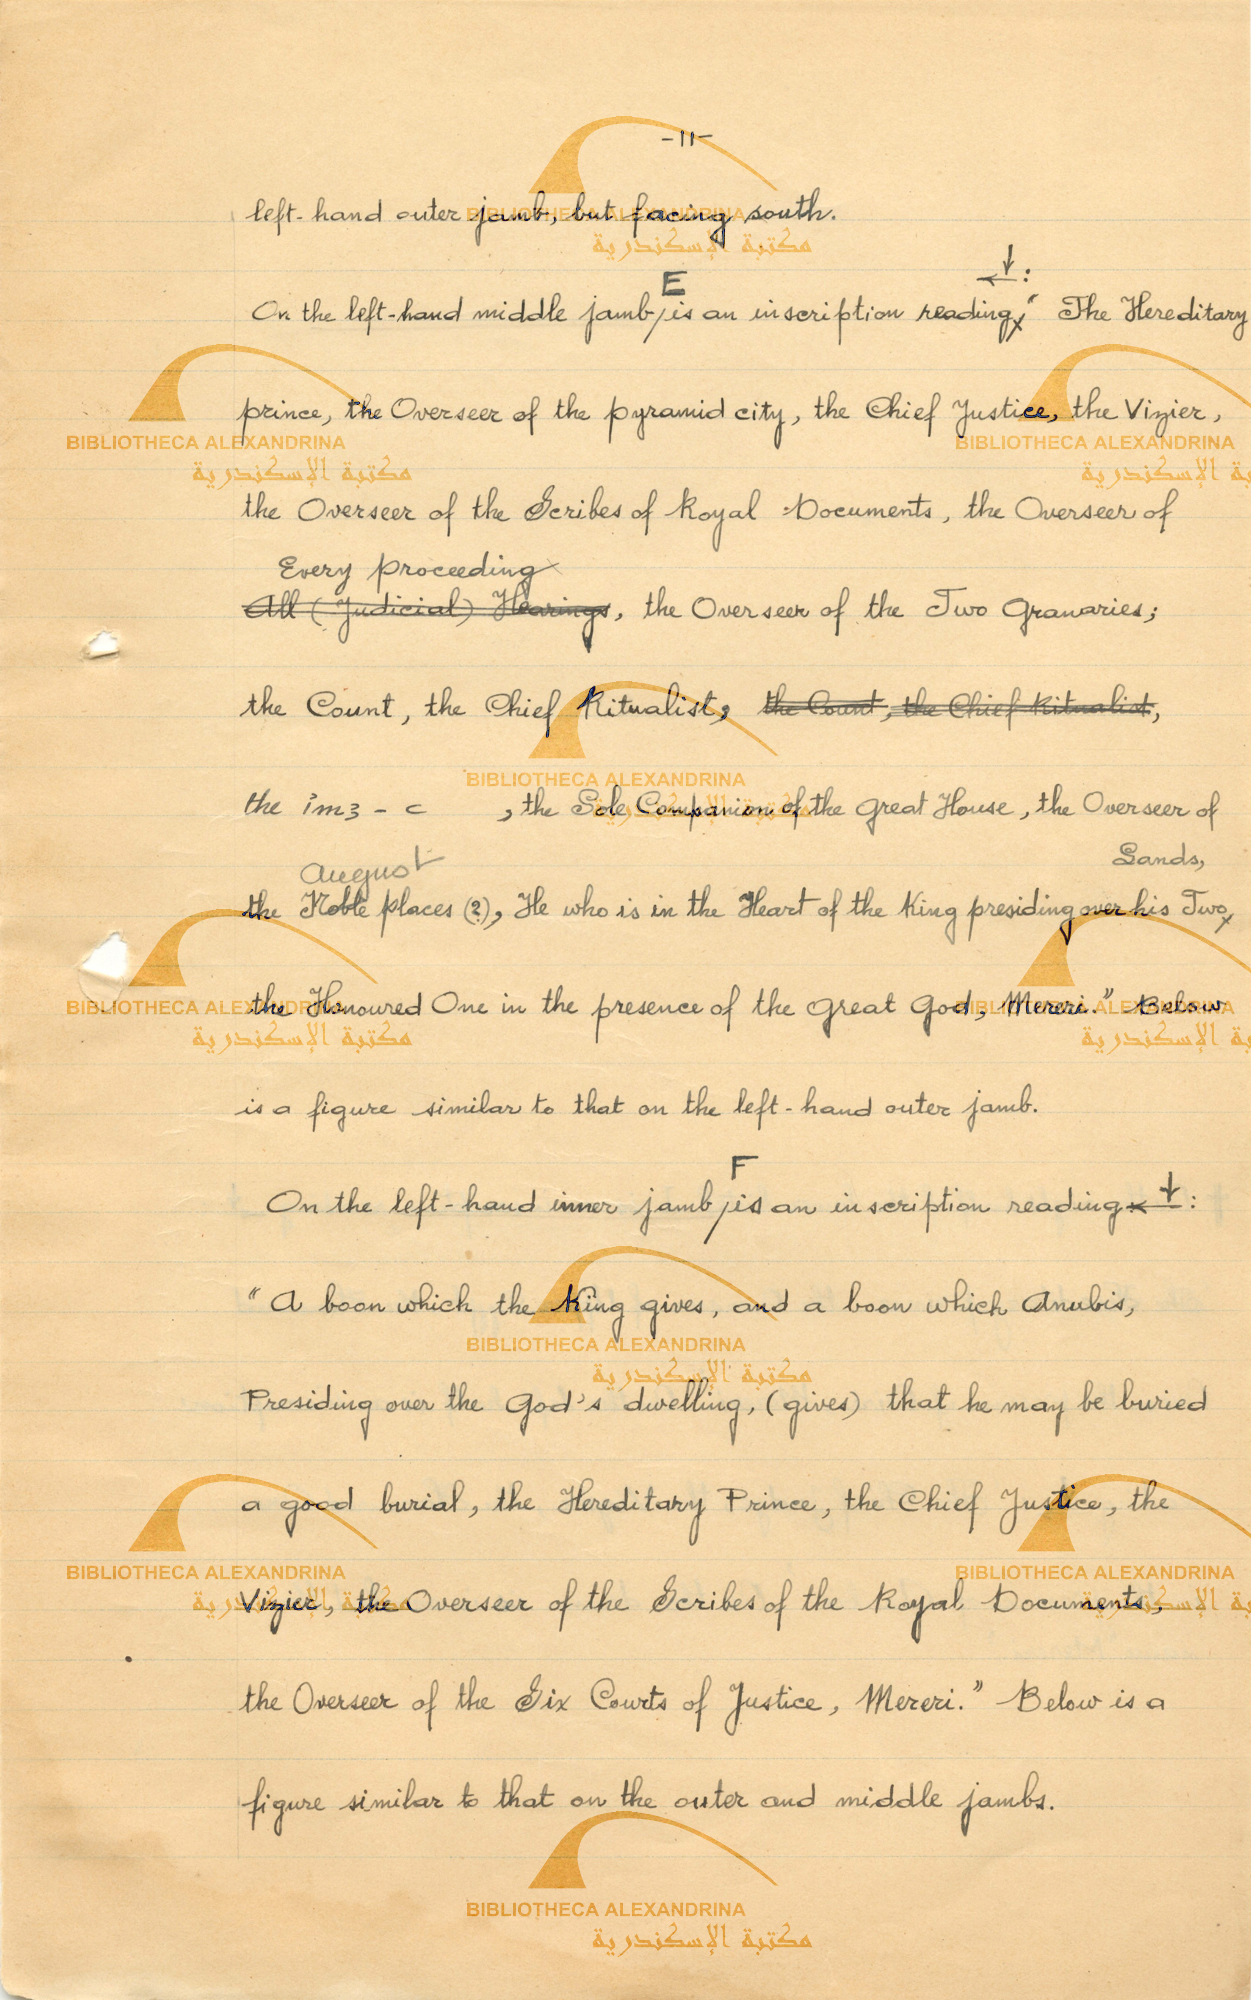 -11-
left-hand outer jamb, but facing south.
E
On the left-hand middle jamb, is an inscription reading: “The Hereditary
prince, the Overseer of the pyramid city, the Chief Justice, the Vizier,
the Overseer of the Scribes of Royal Documents, the Overseer of
Every proceeding
All (Judicial) Hearings, the Overseer of the Two Granaries;
the Count, the Chief Ritualist, the Count, the Chief Ritualist,
the im3 - c , the Sole Companion of the Great House, the Overseer of
August Lands,
the Noble places (?), He who is in the Heart of the King presiding over his Two
the Honoured One in the presence of the Great God, Mereri.” Below
is a figure similar to that on the left-hand outer jamb.
F
On the left-hand inner jamb, is an inscription reading :
“A boon which the King gives, and a boon which Anubis,
Presiding over the God's dwelling, (gives) that he may be buried
a good burial, the Hereditary Prince, the Chief Justice, the
Vizier, the Overseer of the Scribes of the Royal Documents,
the Overseer of the Six Courts of Justice, Mereri.” Below is a
figure similar to that on the outer and middle jambs.
BIBLIOTHECA ALEXANDRINA
مكتبة الإسكندرية